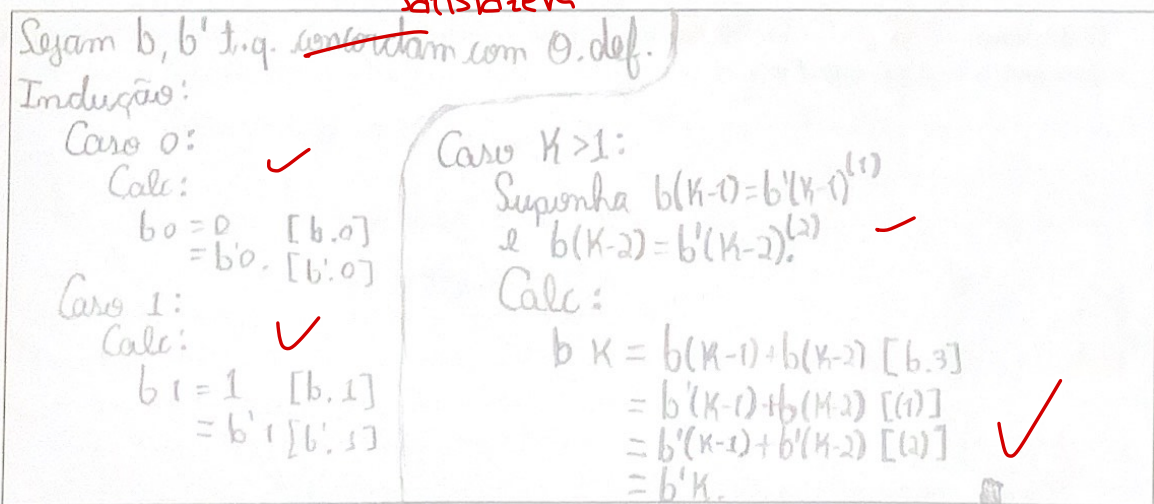 satisfazem
Sejam b, b' t.q. concordam com θ.def.
Indução:
Caso 0:
Calc:
b 0 = 0 [b.0]
= b'0. [b'.0]
Caso 1:
Calc:
b 1 = 1 [b.1]
= b'1 [b'.1]
Caso K>1:
Suponha b(K-1)=b'(K-1)⁽¹⁾
e b(K-2)=b'(K-2)⁽²⁾.
Calc:
b K = b(K-1)+b(K-2) [b.3]
= b'(K-1)+b(K-2) [(1)]
= b'(K-1)+b'(K-2) [(2)]
= b'K.